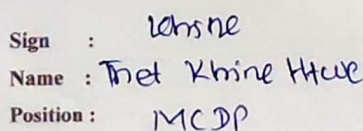 Sign :
Name : Thet Khine Htwe
Position : MCDP